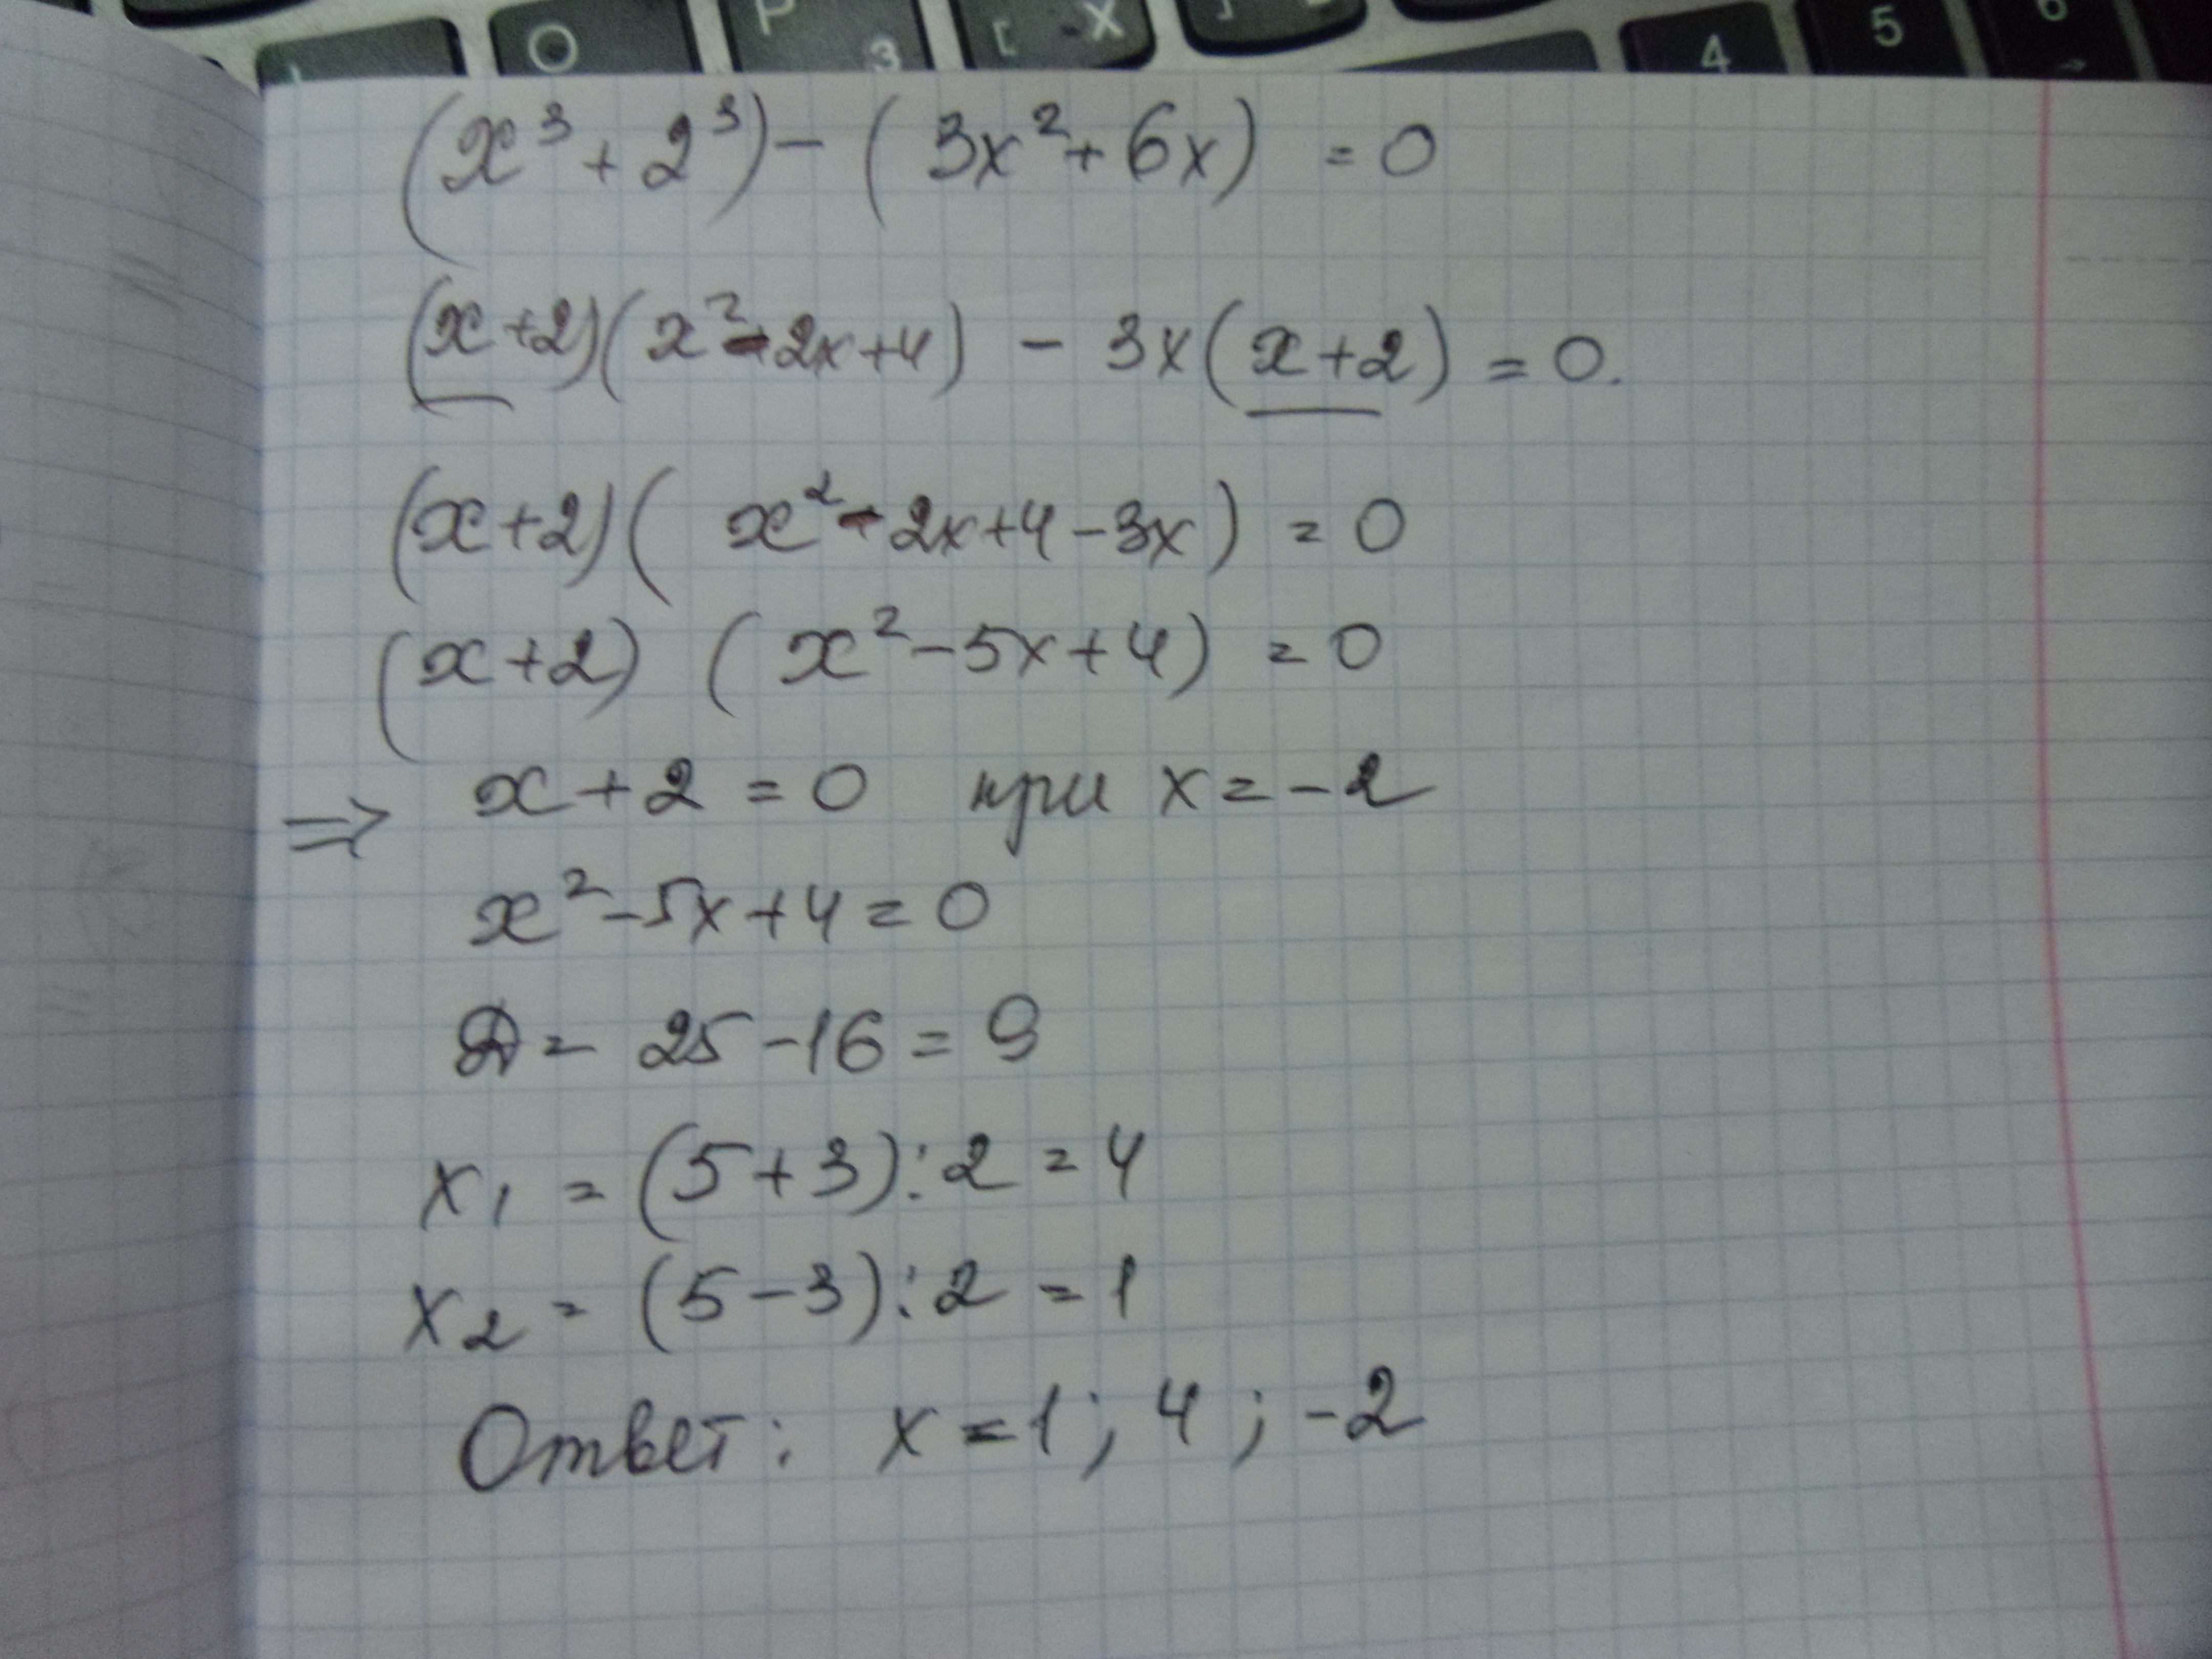 O P 3 [ X ] 4 5 6
(x³ + 2³) - (3x² + 6x) = 0
(x+2)(x² - 2x + 4) - 3x(x+2) = 0.
(x+2)(x² - 2x + 4 - 3x) = 0
(x+2) (x² - 5x + 4) = 0
⇒ x + 2 = 0 при x = -2
x² - 5x + 4 = 0
D = 25 - 16 = 9
x₁ = (5+3):2 = 4
x₂ = (5-3):2 = 1
Ответ: x = 1; 4; -2